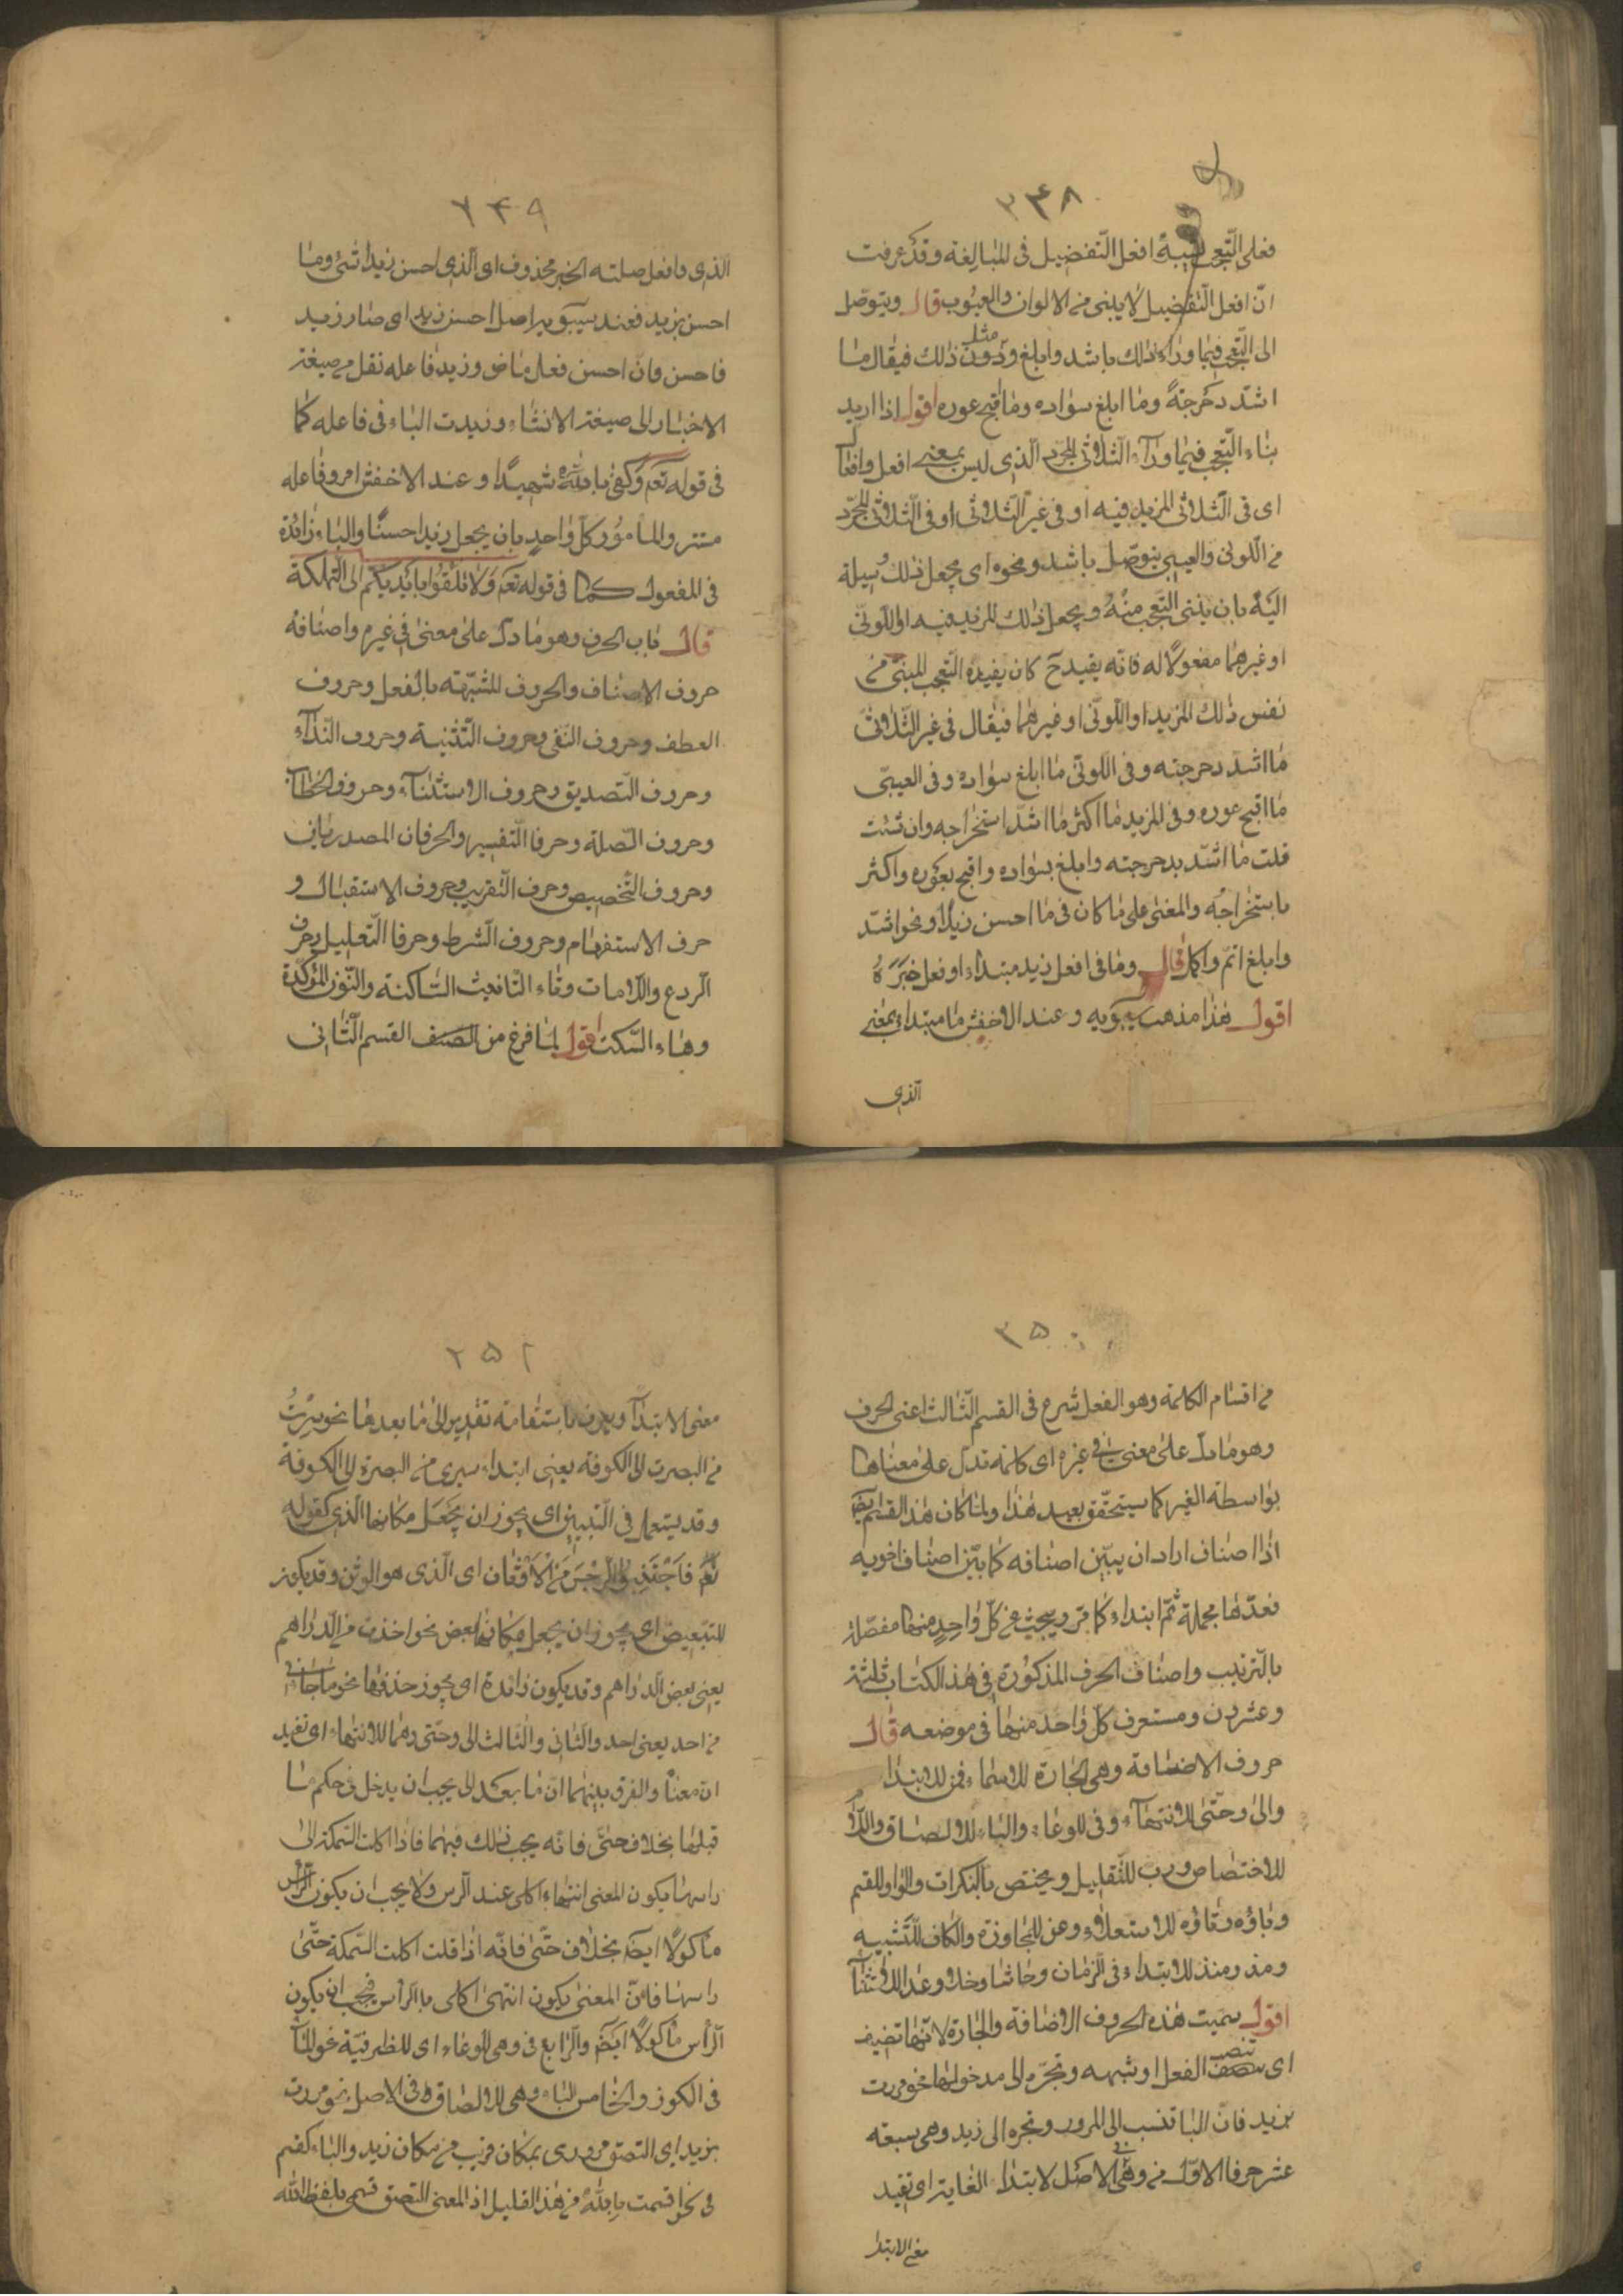 ٣٤٨
فعلى التّعجب لشبه افعل التّفضيل فى المبالغة وقد عرفت
انّ افعل التّفضيل لا يبنى من الالوان والعيوب قال ويتوصّل
الى التّعجب فيما وراء ذلك باشد وابلغ ودون مثل ذلك فيقال ما
اشدّ دحرجته وما ابلغ سواده وما اقبح عوره اقول اذا اريد
بناء التّعجب فيما ورآء الثلاثى المجرد الّذى ليس بمعنى افعل وافعال
اى فى الثلاثى المزيد فيه او فى غير الثّلاثى او فى الثّلاثى المجرّد
من اللّونى والعيبى يتوصّل باشد ونحوه اى يجعل ذلك وسيلة
اليه بان يبنى التّعجب منه ويجعل ذلك المزيد فيه او اللّونى
او غيرهما مفعولا له فانّه يفيد ح كان يفيده التّعجب المبنى من
نفس ذلك المزيد او اللّونى او غيرهما فيقال فى غير الثّلاثى
ما اشدّ دحرجته وفى اللّونى ما ابلغ سواده وفى العيبى
ما اقبح عوره وفى المزيد ما اكثر ما اشدّ استخراجه وان شئت
قلت ما اشدّ بدحرجته وابلغ بسواده واقبح بعوره واكثر
باستخراجه والمعنى على ما كان فى ما احسن زيدا ونحو اشدّ
وابلغ اتمّ واكمل قال وما فى افعل زيد مبتداء وافعل خبره
اقول هذا مذهب سيبويه وعند الاخفش ما مبتدا بمعنى
الّذى
٣٤٩
الّذى وافعل صلته الخبر محذوف اى الّذى احسن زيدا شئ وما
احسن بزيد فعند سيبويه اصل احسن زيد اى صار زيد
فاحسن وانّ احسن فعل ماض وزيد فاعله نقل من صيغة
الاخبار الى صيغة الانشاء وزيدت الباء فى فاعله كما
فى قوله تعه وكفى بالله شهيدًا وعند الاخفش امر وفاعله
مستتر والمامور كلّ واحدٍ بان يجعل زيدا حسنًا والباء زائدة
فى المفعول كما فى قوله تعه ولا تلقوا بايديكم الى التّهلكة
قال باب الحرف وهو ما دلّ على معنىً فى غيره واصنافه
حروف الاضاف والحروف المشبّهة بالفعل وحروف
العطف وحروف النّفى وحروف التّنبيه وحروف النّدآء
وحروف التّصديق وحروف الاستثنآء وحروف الخطاب
وحروف الصّلة وحرفا التّفسير والحرفان المصدريان
وحروف التّحضيض وحرف التّقريب وحروف الاستقبال و
حرف الاستفهام وحروف الشّرط وحرفا التّعليل وحرف
الرّدع واللّامات وتاء التّانيث السّاكنة والنّون المؤكّدة
وهاء السّكت اقول لمّا فرغ من الصنف القسم الثّانى
٣٥٠
من اقسام الكلمة وهو الفعل شرع فى القسم الثّالث اعنى الحرف
وهو ما دلّ على معنىً فى غيره اى كلمة تدلّ على معناها
بواسطة الغير كما سيتحقّق بعيد هذا ولمّا كان هذا القسم ايضا
ذا اصناف اراد ان يبيّن اصنافه كما بيّن اصناف اخويه
فعدّها مجملة ثمّ ابتداء كما مرّ ويبحث عن كلّ واحدٍ منها مفصّلة
بالتّرتيب واصناف الحرف المذكورة فى هذا الكتاب ثلثة
وعشرون وستعرف كلّ واحد منها فى موضعه قال
حروف الاضافة وهى الجارّة للاسماء فمن للابتدا
والى وحتّى للانتهآء وفى للوعاء والباء للالصاق واللّام
للاختصاص وربّ للتّقليل ويختص بالنكرات والواو للقسم
وباؤه وتاؤه للاستعلاء وعن للمجاوزة والكاف للتّشبيه
ومذ ومنذ للابتداء فى الزّمان وحاشا وخلا وعدا للاستثنآء
اقول سمّيت هذه الحروف الاضافة والجارة لانّها تضيف
اى تنصب الفعل او شبهه وتجرّه الى مدخولها نحو مررت
بزيد فانّ البا تنسب الى المرور وتجره الى زيد وهى سبعة
عشر حرفا الاوّل من وهى فى الاصل لابتداء الغاية اى تفيد
معنى الابتدا
٣٥١
معنى الابتدآ ويعرف باستقامة تقدير الى ما بعدها نحو سرت
من البصرت الى الكوفة يعنى ابتداء سيرى من البصرة الى الكوفة
وقد يستعمل فى التّبيين اى يجوز ان يجعل مكانها الّذى كقوله
تعه فاجتنبوا الرّجس من الاوثان اى الّذى هو الوثن وقد يكون
للتّبعيض اى يجوز ان يجعل مكانها بعض نحو اخذت من الدّراهم
يعنى بعض الدّراهم وقد يكون زائدة اى يجوز حذفها نحو ما جاءنى
من احد يعنى احد والثانى والثالث الى وحتّى وهما للانتهاء اى تفيد
ان معناه والفرق بينهما انّ ما بعد الى يجب ان يدخل فى حكم ما
قبلها بخلاف حتّى فانّه يجب ذلك فيهما فاذا اكلت السّمكة الى
راسها يكون المعنى انتهاء اكلى عند الرّس ولا يجب ان يكون الرّاس
ماكولًا ايضه بخلاف حتّى فانّه اذا قلت اكلت السّمكة حتّى
راسها فانّ المعنى يكون انتهى اكلى بالرّاس فيجب ان يكون
الرّأس ماكولًا ايضه والرّابع فى وهى للوعاء اى للظرفيّة نحو المآء
فى الكوز والخامس الباء وهى للالصاق فى الاصل نحو مررت
بزيد اى التصق مرورى بمكان قريب من مكان زيد والباء كقسم
فى نحو اقسمت بالله من هذا القليل اذ المعنى التصق قسمى بلفظ الله